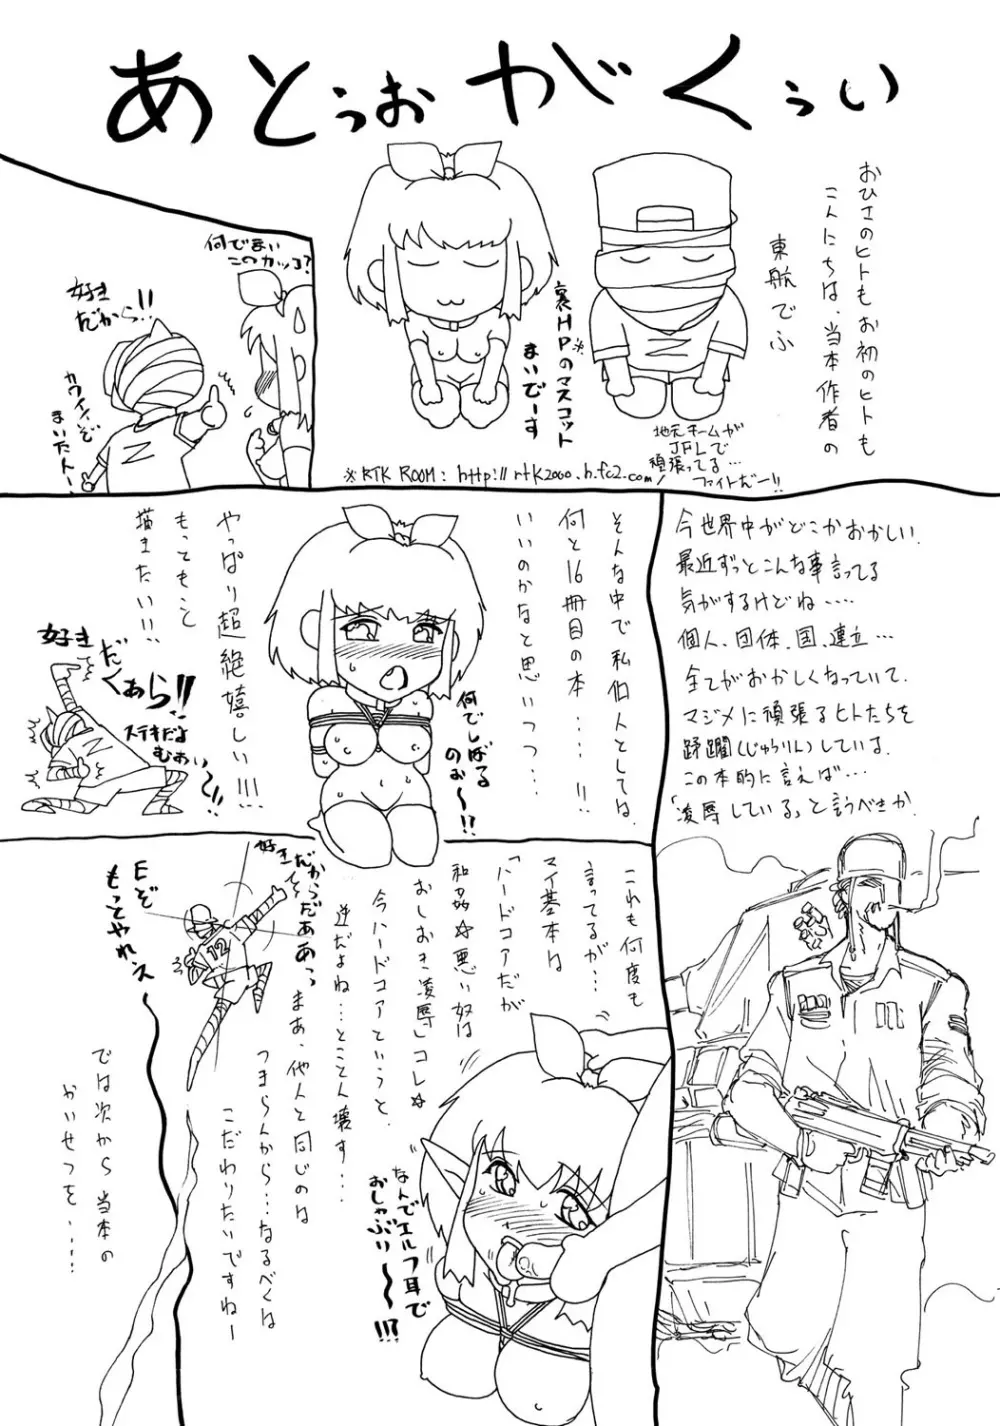 あとぅおがくぅい
おひさのヒトもお初のヒトも
こんにちは、当本作者の
東航でふ
裏HP※のマスコット
まいでーす
地元チームが
JFLで
頑張ってる…
ファイトだー!!
※RTK ROOM: http://rtk2000.h.fc2.com/
何でまい
このカッコ?
好き
だから!!
カワイイぞ
まいたん!
今世界中がどこかおかしい。
最近ずっとこんな事言ってる
気がするけどね…
個人、団体、国、連立…
全てがおかしくなっていて、
マジメに頑張るヒトたちを
蹂躙(じゅうりん)している。
この本的に言えば…
「凌辱している」と言うべきか
そんな中で私個人としては、
何と16冊目の本…!!
いいのかなと思いつつ…
やっぱり超絶嬉しい!!!
もっともっと
描きたい!!
何でしばる
のぉ〜!?
好き
だくぁら!!
ステキだよ
むぉい〜!!
これも何度も
言ってるが…
マイ基本は
「ハードコアだが
和姦☆悪い奴は
おしおき凌辱」コレ☆
今ハードコアていうと、
逆だよね…とことん壊す…
まあ、他人と同じのは
つまらんから…なるべくは
こだわりたいですねー
なんでエルフ耳で
おしゃぶり〜!!?
好き
だからだああっ
12
Eぞ
もっとやれ、ス〜
では次から当本の
かいせつを…